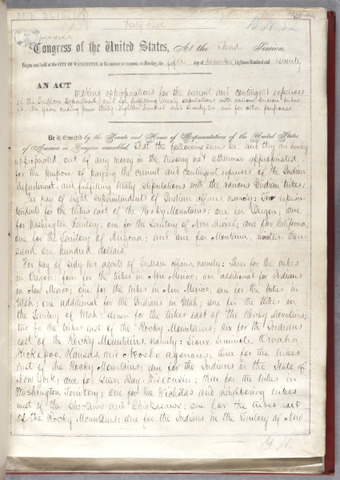 Forty-first
Congress of the United States, At the Third Session,
Begun and held at the CITY OF WASHINGTON, in the District of Columbia, on Monday, the fifth day of December, Eighteen Hundred and seventy
AN ACT
Making appropriations for the current and contingent expenses
of the Indian Department, and for fulfilling treaty stipulations with various Indian tribes
for the year ending June thirty, eighteen hundred and seventy-two, and for other purposes
Be it Enacted by the Senate and House of Representatives of the United States
of America in Congress assembled, That the following sums be, and they are hereby
appropriated, out of any money in the treasury not otherwise appropriated
for the purpose of paying the current and contingent expenses of the Indian
department, and fulfilling treaty stipulations with the various Indian tribes:
For pay of eight superintendents of Indian affairs, namely: Two superin-
tendents for the tribes east of the Rocky Mountains; one in Oregon; one
for Washington Territory; one for the Territory of New Mexico; one for California;
one for the Territory of Arizona; and one for Montana,
sand one hundred dollars.
For pay of sixty two agents of Indian affairs, namely: Three for the tribes
in Oregon; four for the tribes in New Mexico; one additional for Indians
in New Mexico; one for the tribes in New Mexico; one for the tribes in
Utah; one additional for the Indians in Utah; one for the tribes in
the Territory of Utah; eleven for the tribes east of the Rocky Mountains;
two for the tribes east of the Rocky Mountains; six for the Indians
east of the Rocky Mountains, namely: Sioux, Seminole, Omaha,
Kickapoo, Kansas, and Neosho agencies; three for the tribes
east of the Rocky Mountains; one for the Indians in the State of
New York; one for Green Bay, Wisconsin; three for the tribes in
Washington Territory; one for the Wichitas and neighboring tribes
west of the Choctaws and Chickasaws; one for the tribes east
of the Rocky Mountains; one for the Indians in the Territory of New